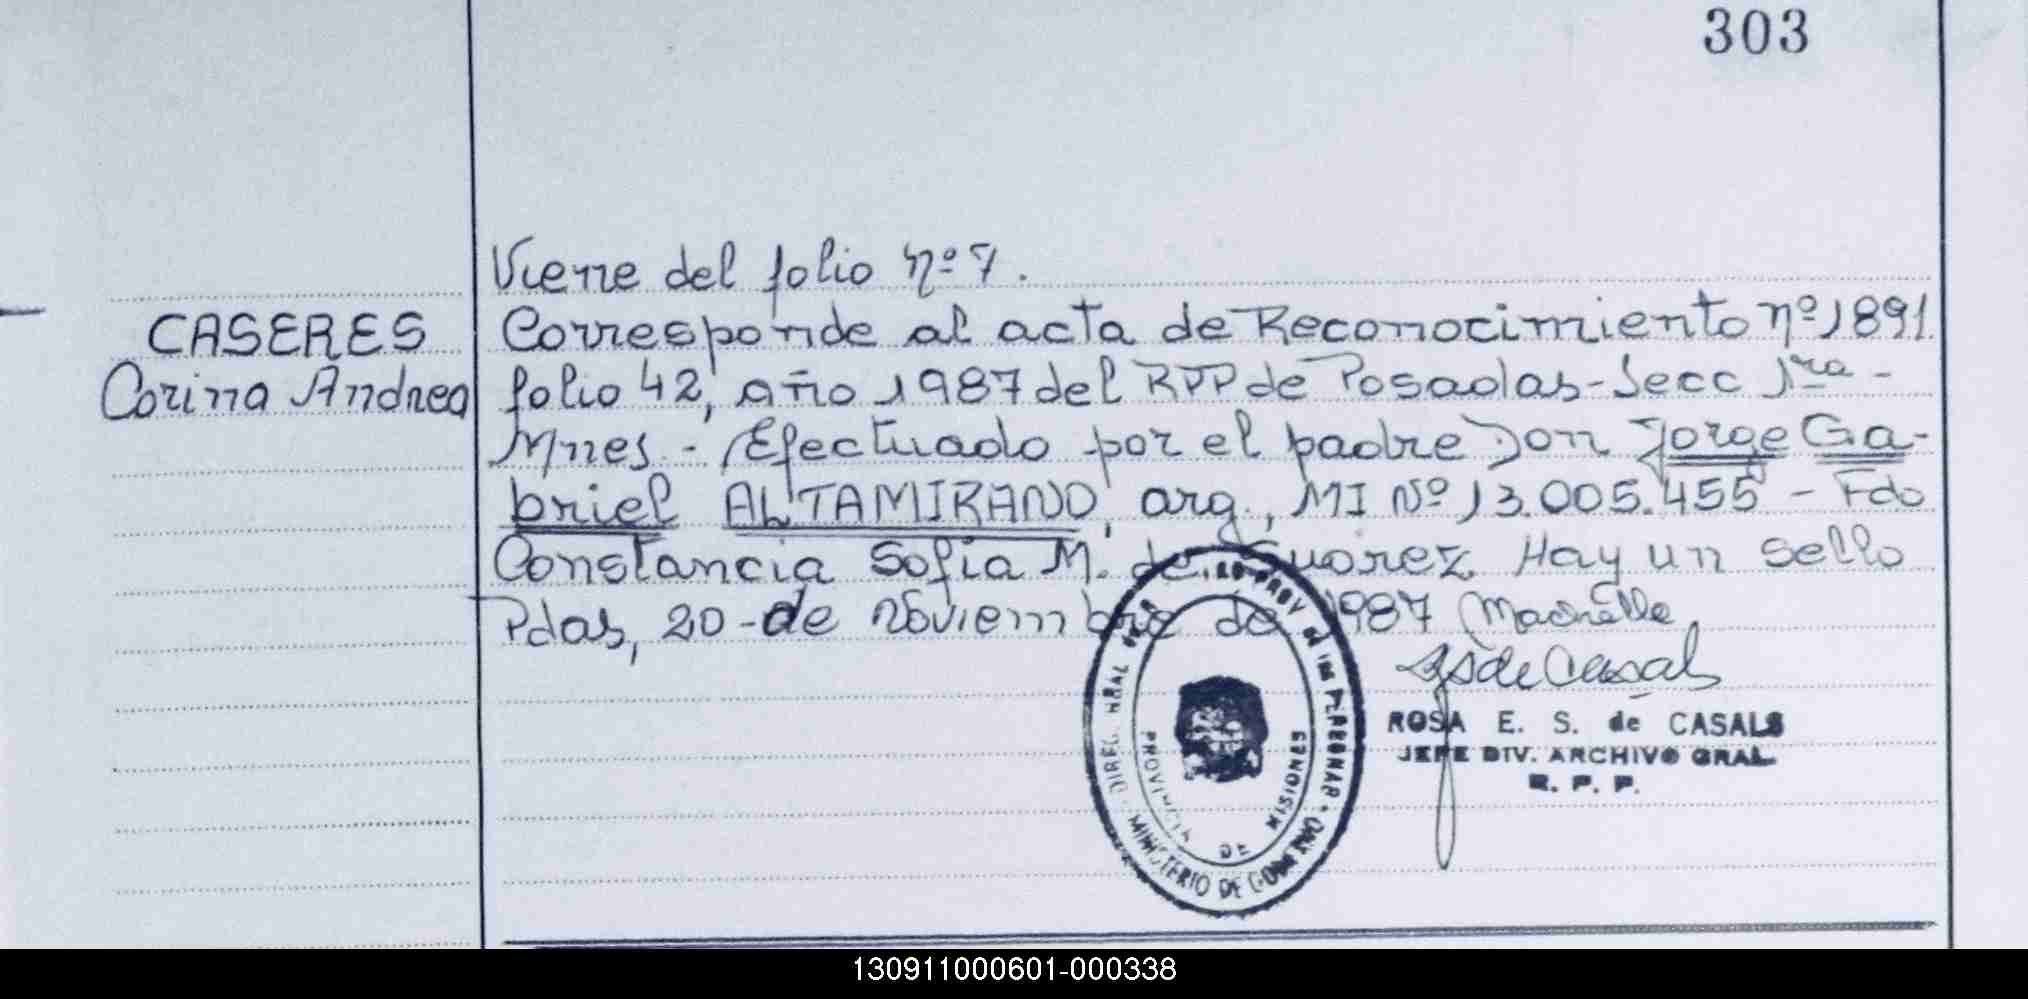 303
Viene del folio nº 7.
CASERES
Corina Andrea
Corresponde al acta de Reconocimiento nº 1891
folio 42, año 1987 del RPP de Posadas - Secc 1ra -
Mnes - Efectuado por el padre Don Jorge Ga-
briel ALTAMIRANO, arg., MI Nº 13.005.455 - Fdo
Constancia Sofia M. de Suarez Hay un sello
Pdas, 20 - de noviembre de 1987
ROSA E. S. de CASALS
JEFE DIV. ARCHIVO GRAL.
R. P. P.
PROVINCIA DE MISIONES
MINISTERIO DE GOBIERNO
130911000601-000338